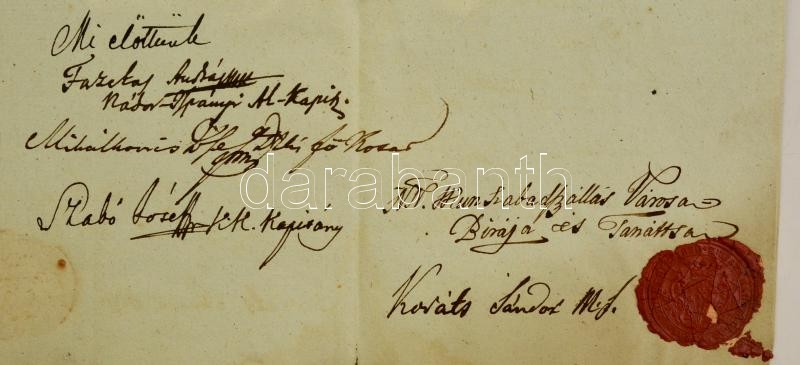 Mi előttünk
Fazekas András
Nádor-Ispányi Al-Kapit.
Mihálkovics fő
Szabó József K.K. Kapitány
N. Kun Szabadszállás Városa
Birája és Tanáttsa
Kováts Sándor M.f.
darabanth